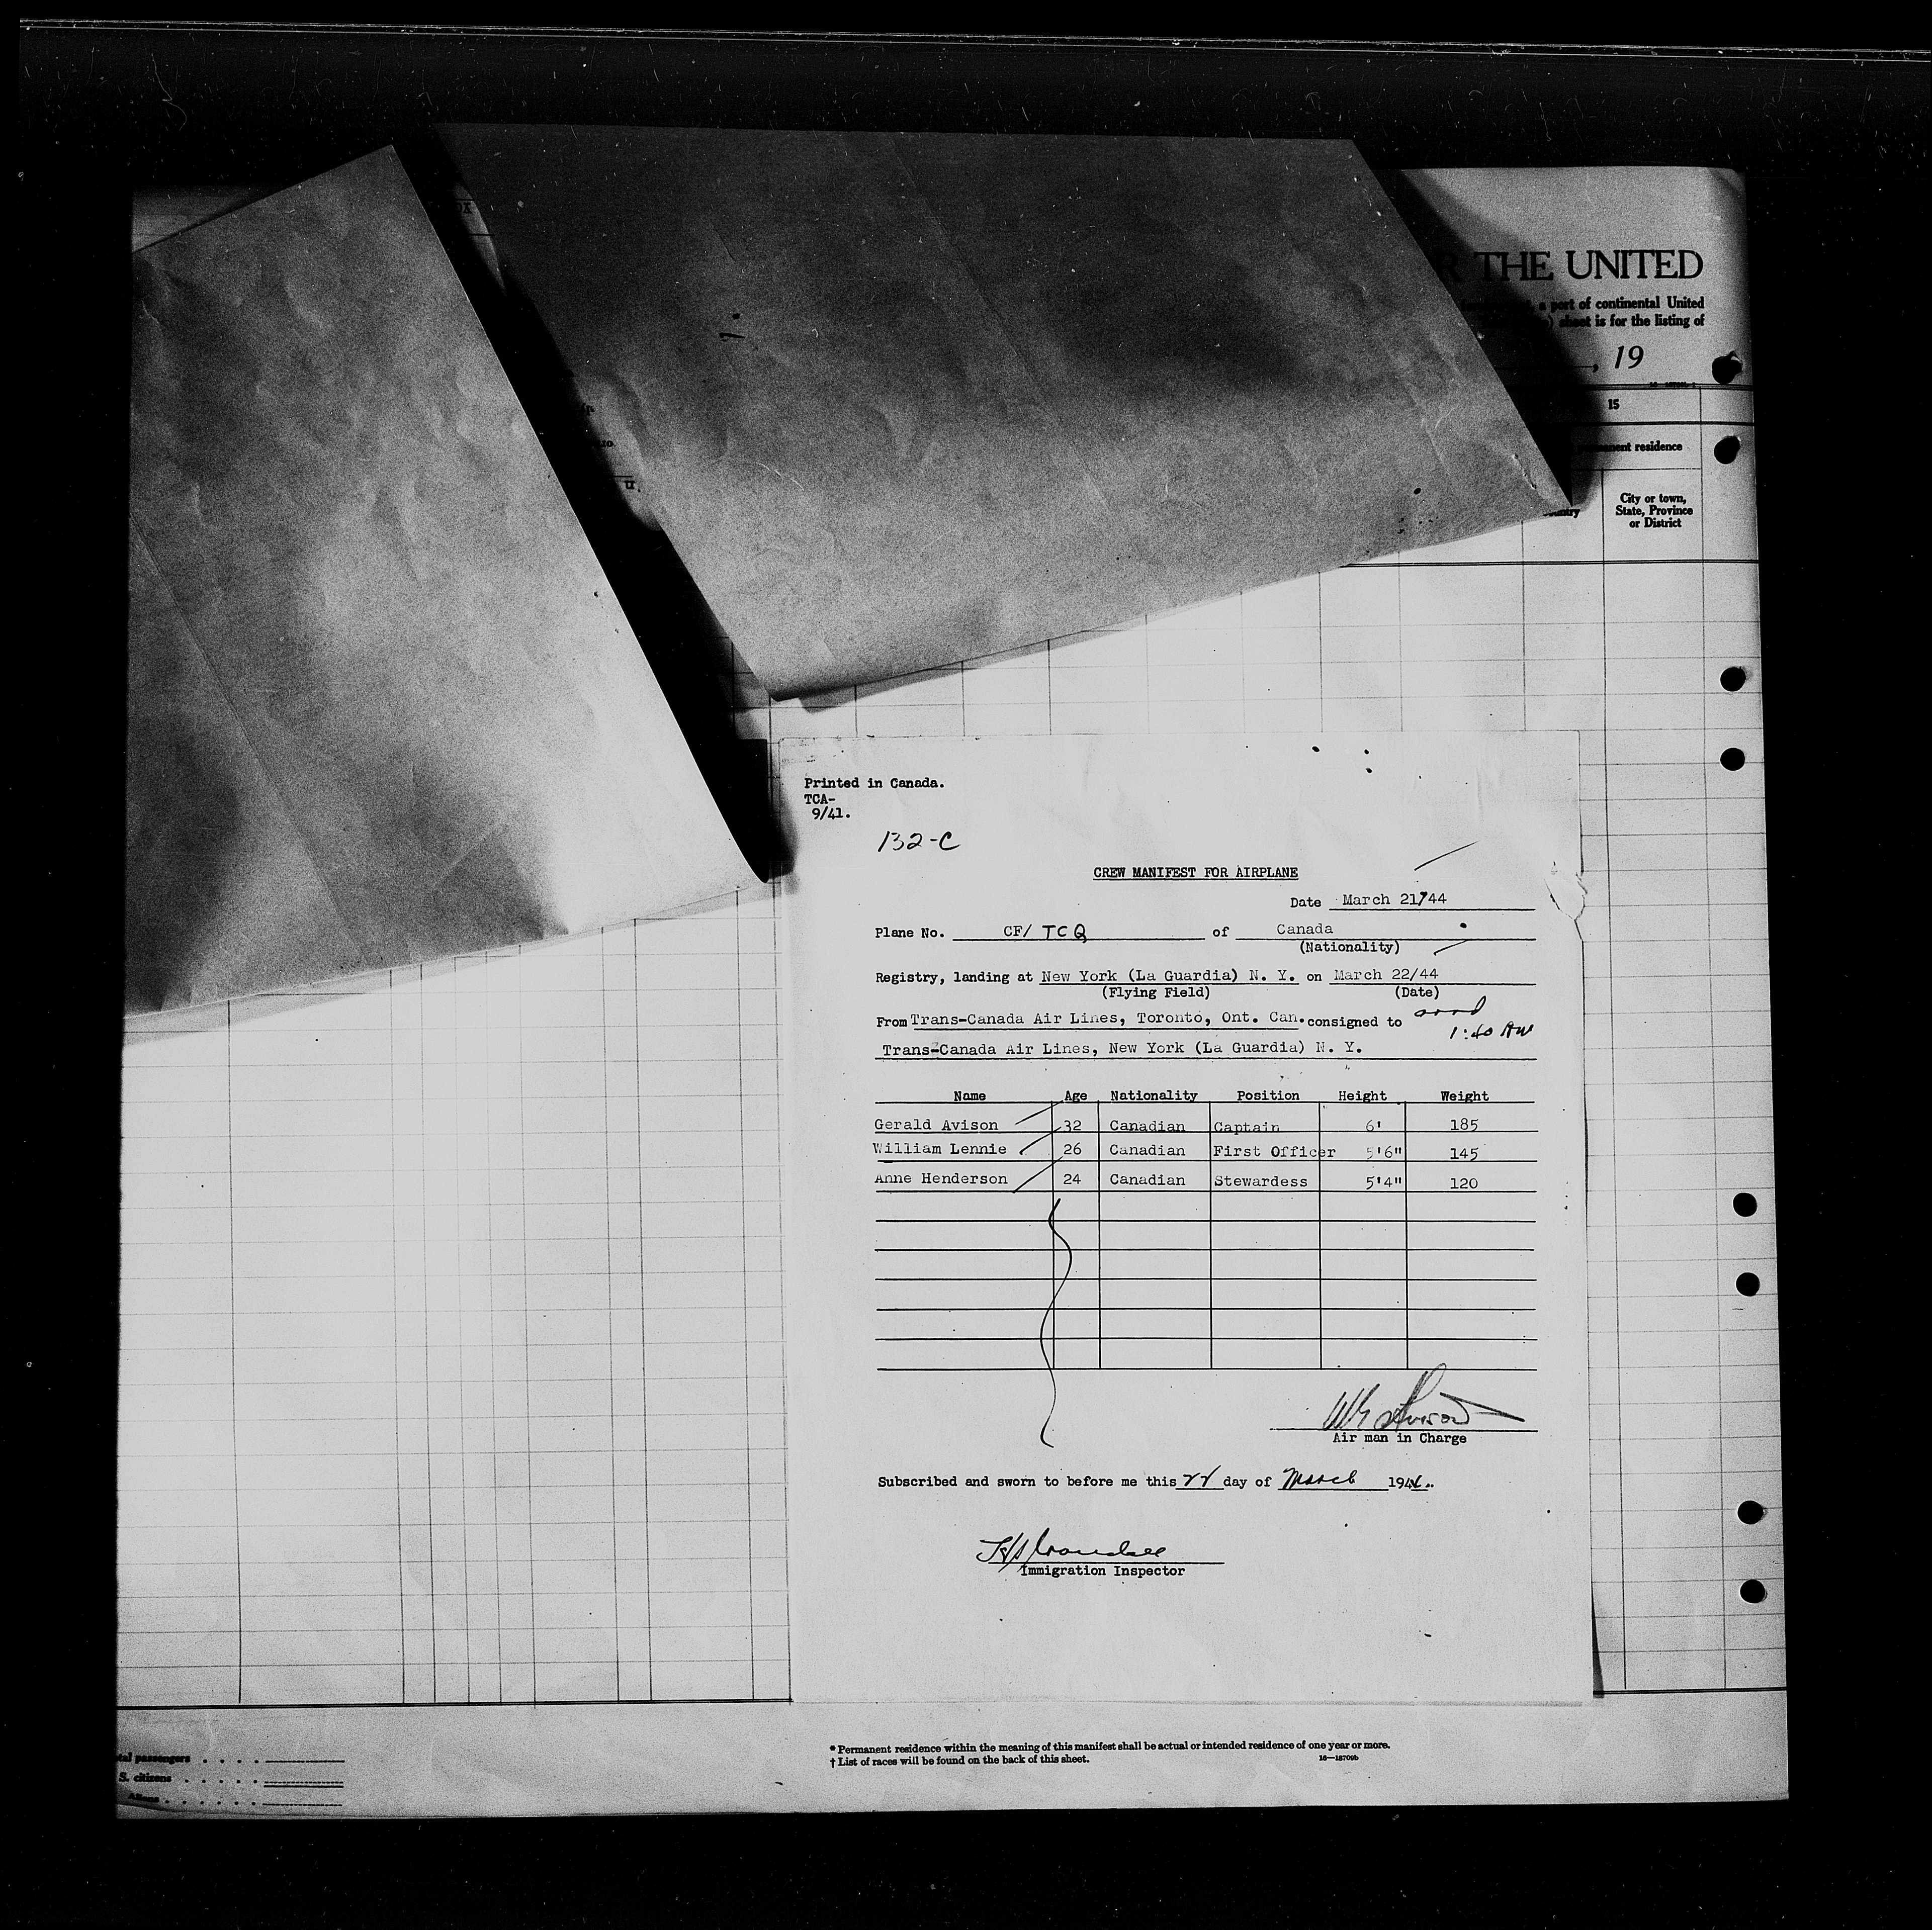 THE UNITED
a port of continental United
sheet is for the listing of
, 19
15
residence
City or town,
State, Province
or District
Printed in Canada.
TCA-
9/41.
132-C
CREW MANIFEST FOR AIRPLANE
Date March 21/44
Plane No. CF/ TCQ of Canada
(Nationality)
Registry, landing at New York (La Guardia) N. Y. on March 22/44
(Flying Field) (Date)
From Trans-Canada Air Lines, Toronto, Ont. Can. consigned to
1:40 AM
Trans-Canada Air Lines, New York (La Guardia) N. Y.
Name Age Nationality Position Height Weight
Gerald Avison 32 Canadian Captain 6' 185
William Lennie 26 Canadian First Officer 5'6" 145
Anne Henderson 24 Canadian Stewardess 5'4" 120
Avison
Air man in Charge
Subscribed and sworn to before me this 22 day of March 1944.
Immigration Inspector
* Permanent residence within the meaning of this manifest shall be actual or intended residence of one year or more.
† List of races will be found on the back of this sheet. 16—18709b
passengers . . . .
S. citizens . . . . .
Aliens . . . . . .